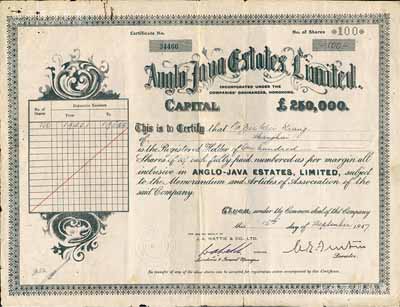 Certificate No.
No. of Shares *100*
34466
-100-
Anglo-Java Estates Limited.
INCORPORATED UNDER THE
COMPANIES' ORDINANCES, HONGKONG.
CAPITAL £250,000.
This is to Certify that
Shanghai
is the Registered Holder of One hundred
Shares of each fully paid, numbered as per margin all
inclusive in ANGLO-JAVA ESTATES, LIMITED, subject
to the Memorandum and Articles of Association of the
said Company.
Given under the Common Seal of the Company
this day of September 1937
J. A. WATTIE & CO., LTD.
Director.
No. of Shares
Inclusive Numbers
From To
100
No transfer of any of the above shares can be accepted for registration unless accompanied by this Certificate.